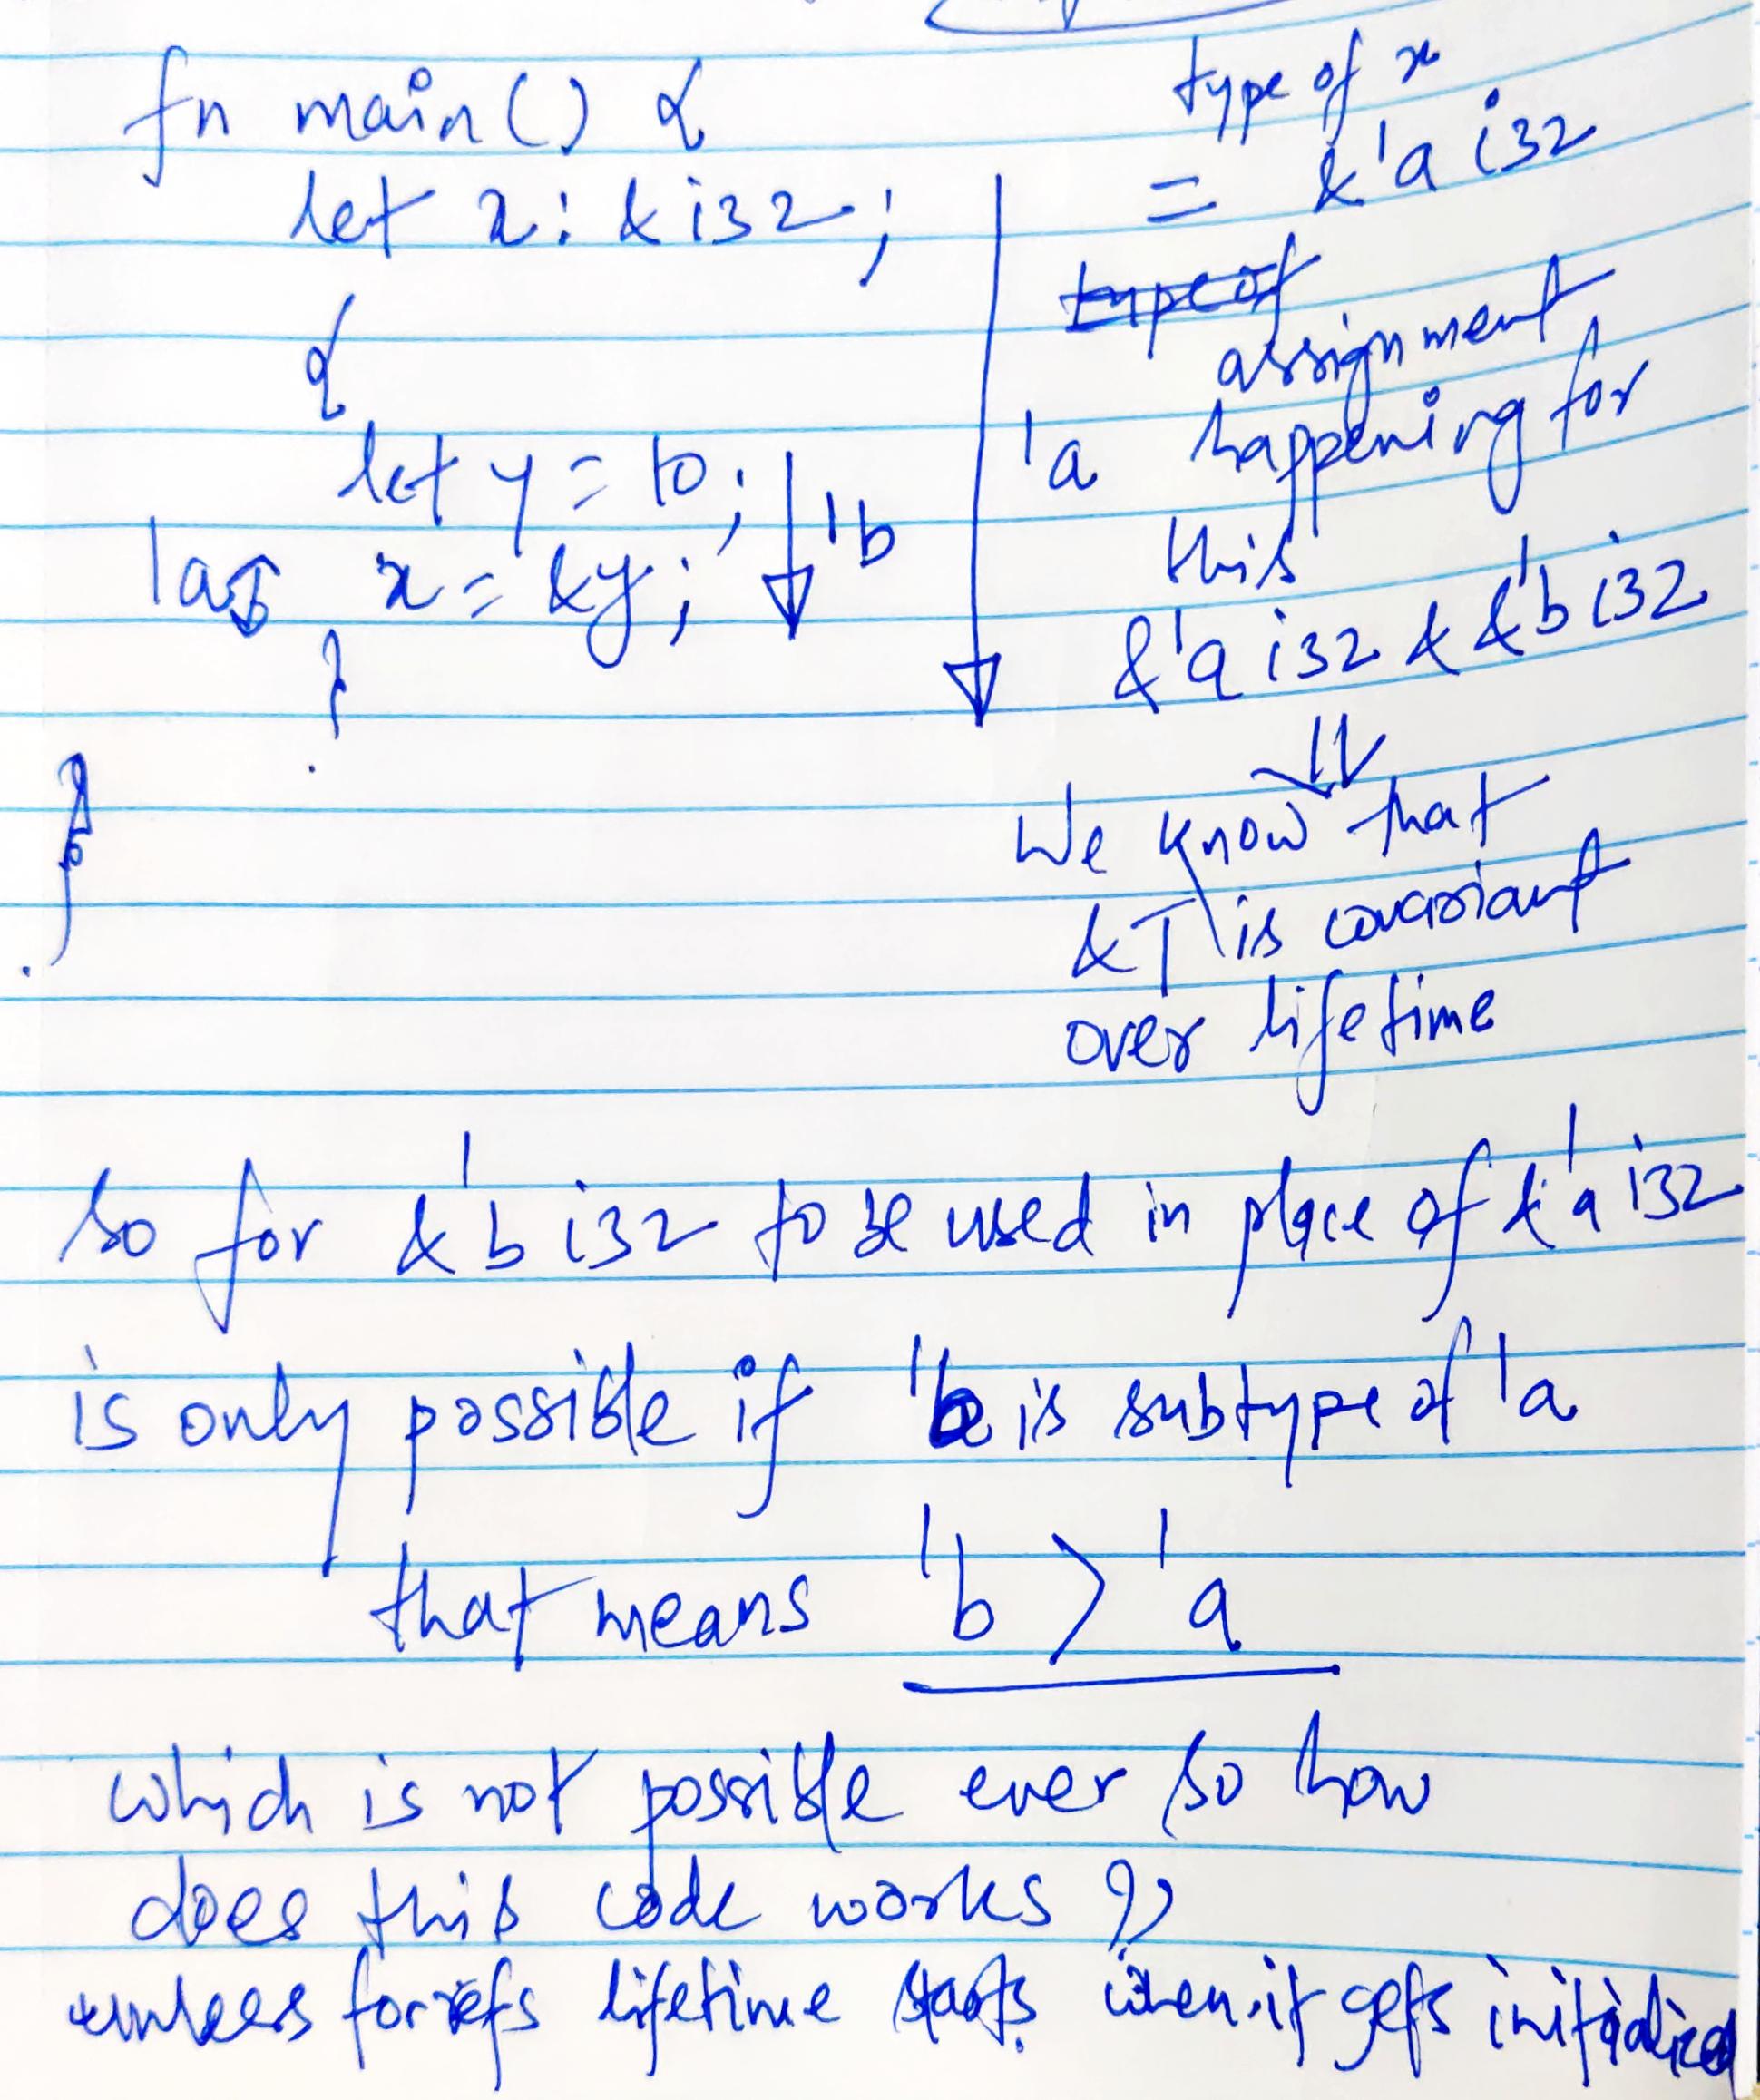 fn main() {
let x: &i32;
{
let y = 10;
'b
'a x = &y;
}
}
type of x
= &'a i32
type of
assignment
'a happening for
this
&'a i32 & &'b i32
⇓
We know that
&T is covariant
over lifetime
so for &'b i32 to be used in place of &'a i32
is only possible if 'b is subtype of 'a
that means 'b > 'a
which is not possible ever so how
does this code works ??
unless for refs lifetime starts when it gets initialized